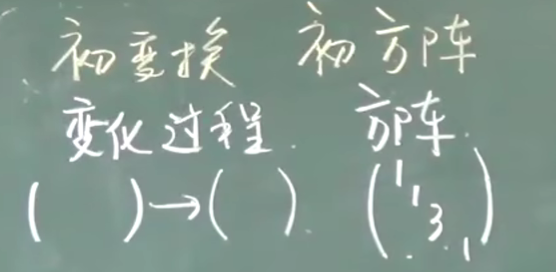 初变换 初方阵
变化过程. 方阵.
( )→( ). (1 1 3 1)